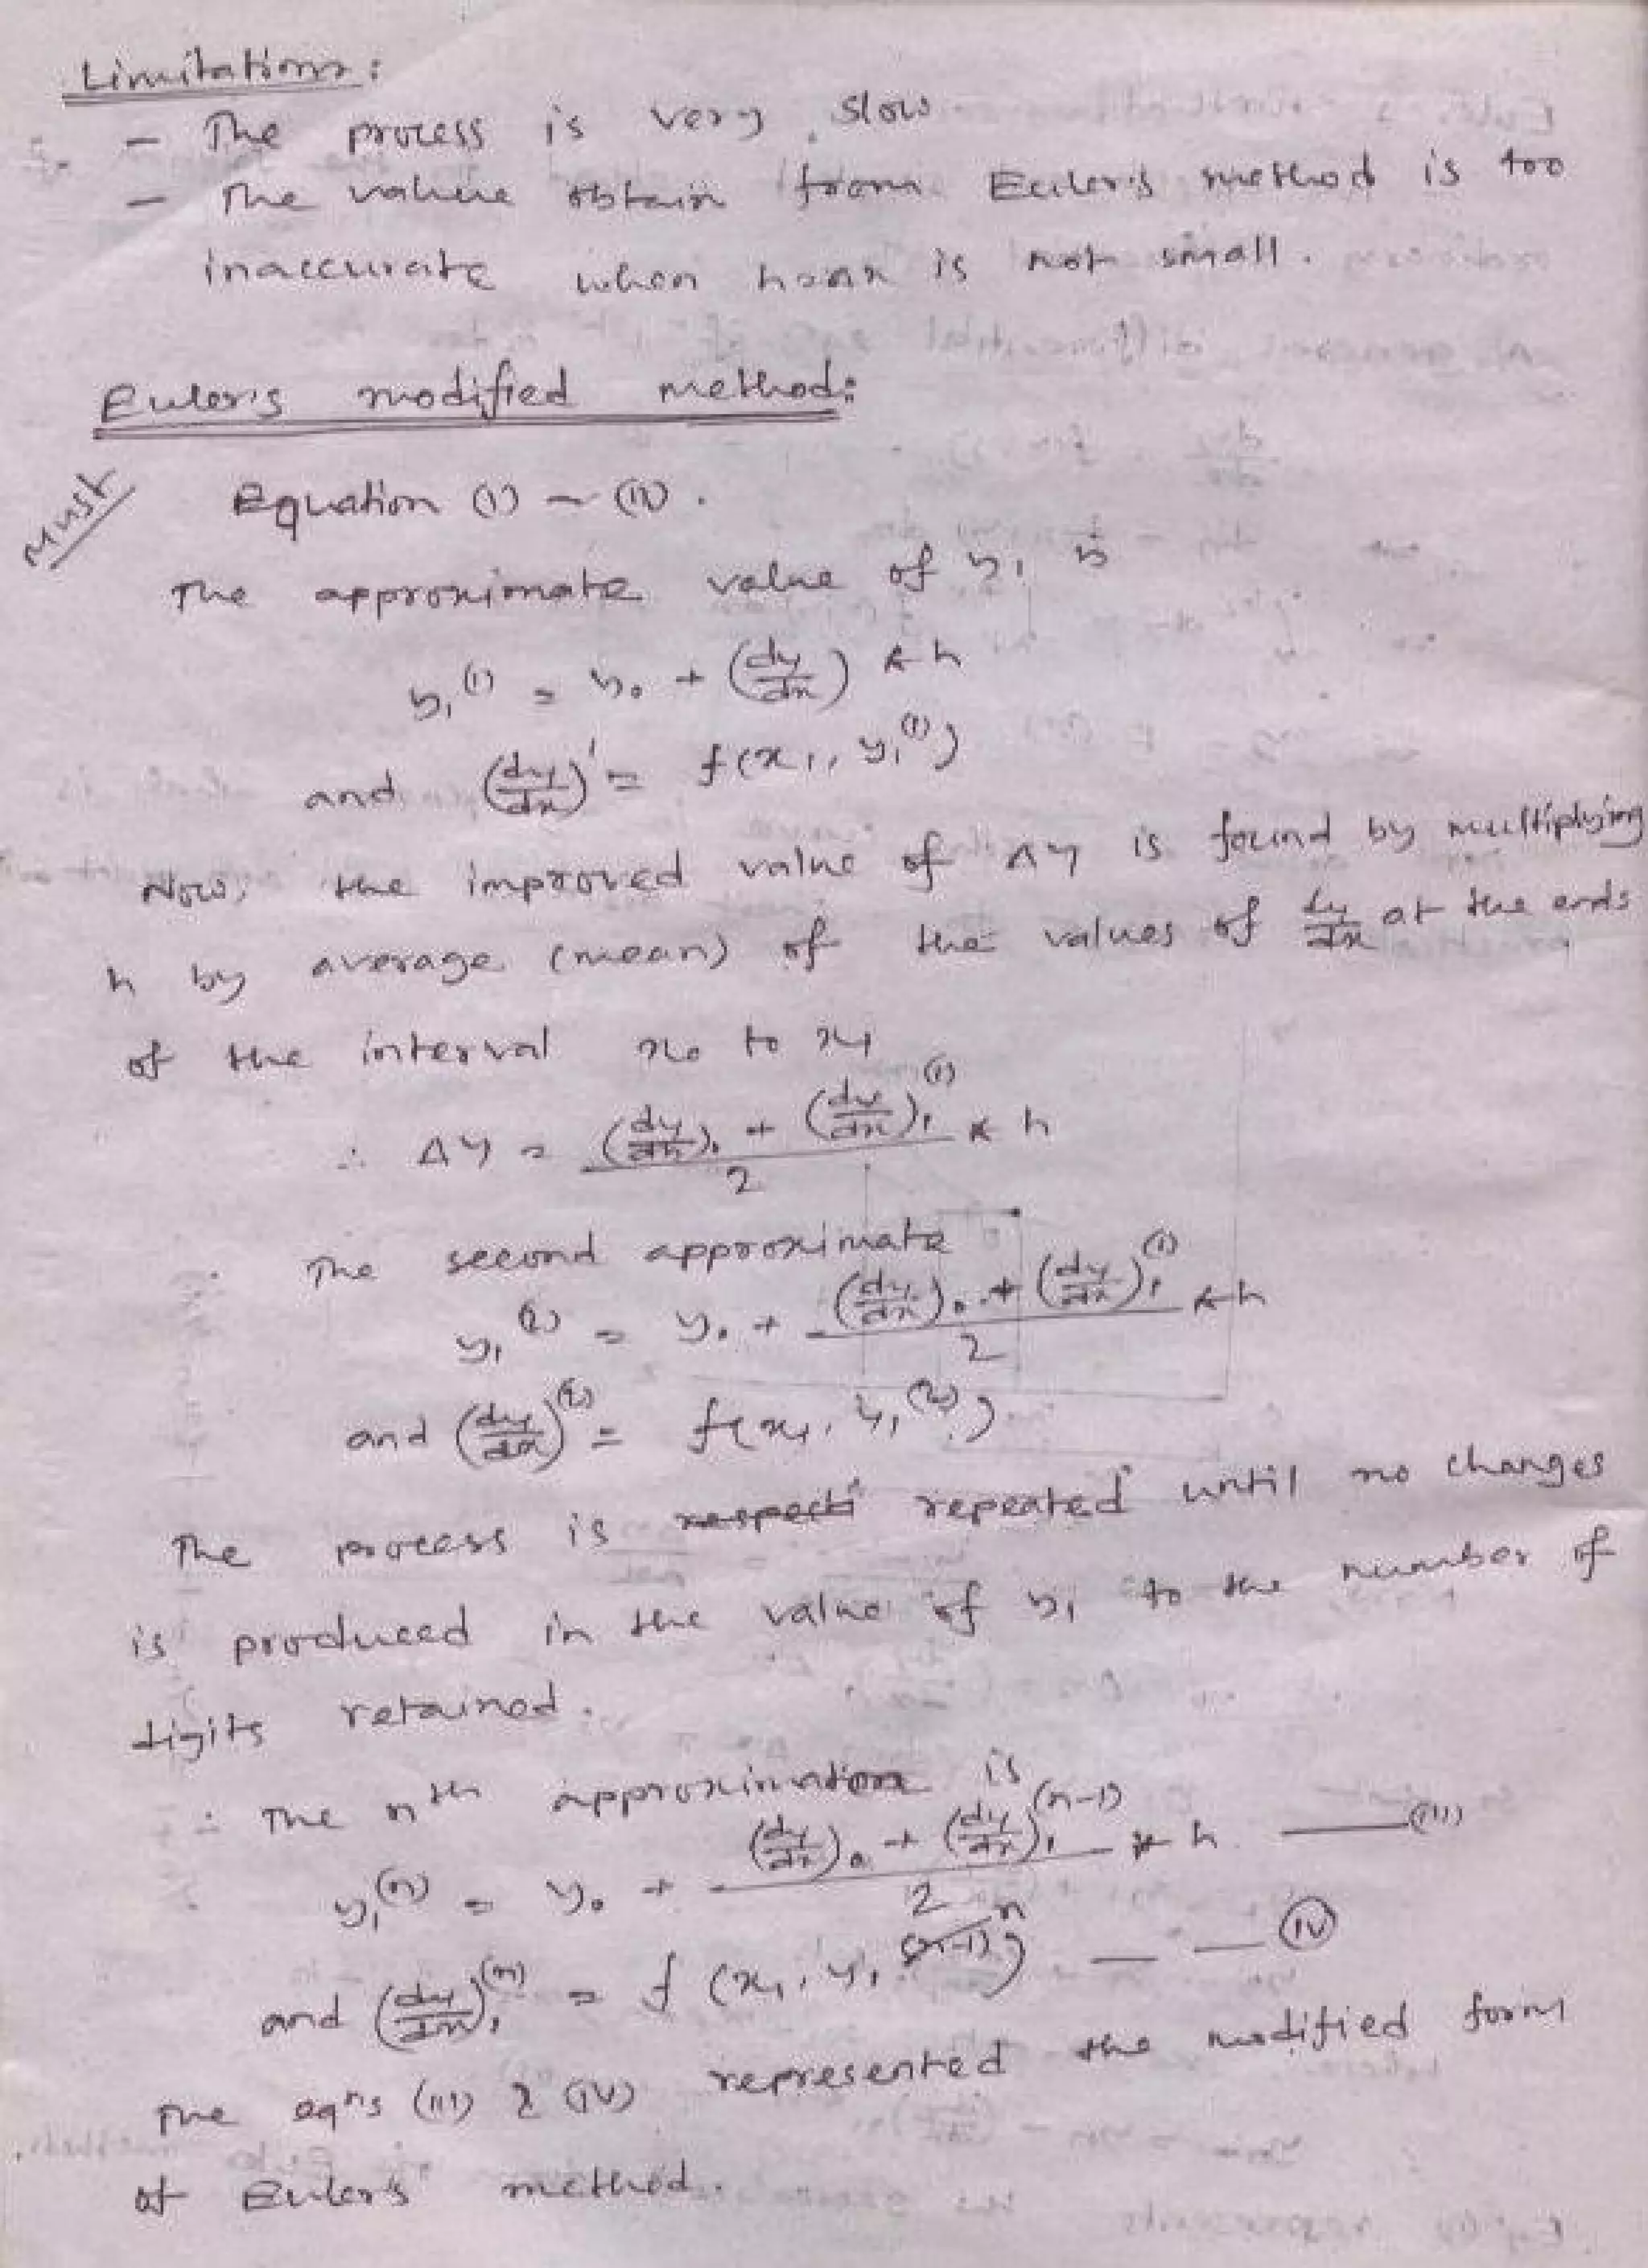 Limitations:
– The process is very slow
– The value obtain from Euler's method is too
inaccurate when h=Δx is not small.
Euler's modified method:
Must
Equation (i) ~ (ii).
The approximate value of y₁ is
y₁⁽¹⁾ = y₀ + (dy/dx) * h
and (dy/dx)' = f(x₁, y₁⁽¹⁾)
Now, the improved value of Δy is found by multiplying
h by average (mean) of the values of dy/dx at the ends
of the interval x₀ to x₁
∴ Δy = ((dy/dx)₀ + (dy/dx)₁⁽¹⁾)/2 * h
The second approximate
y₁⁽²⁾ = y₀ + ((dy/dx)₀ + (dy/dx)₁⁽¹⁾)/2 * h
and (dy/dx)⁽²⁾ = f(x₁, y₁⁽²⁾)
The process is repeated until no changes
is produced in the value of y₁ to the number of
digits retained.
∴ The nth approximation is
y₁⁽ⁿ⁾ = y₀ + ((dy/dx)₀ + (dy/dx)₁⁽ⁿ⁻¹⁾)/2 * h —(iii)
and (dy/dx)₁⁽ⁿ⁾ = f(x₁, y₁ⁿ) — — (iv)
The eqns (iii) & (iv) represented the modified form
of Euler's method.